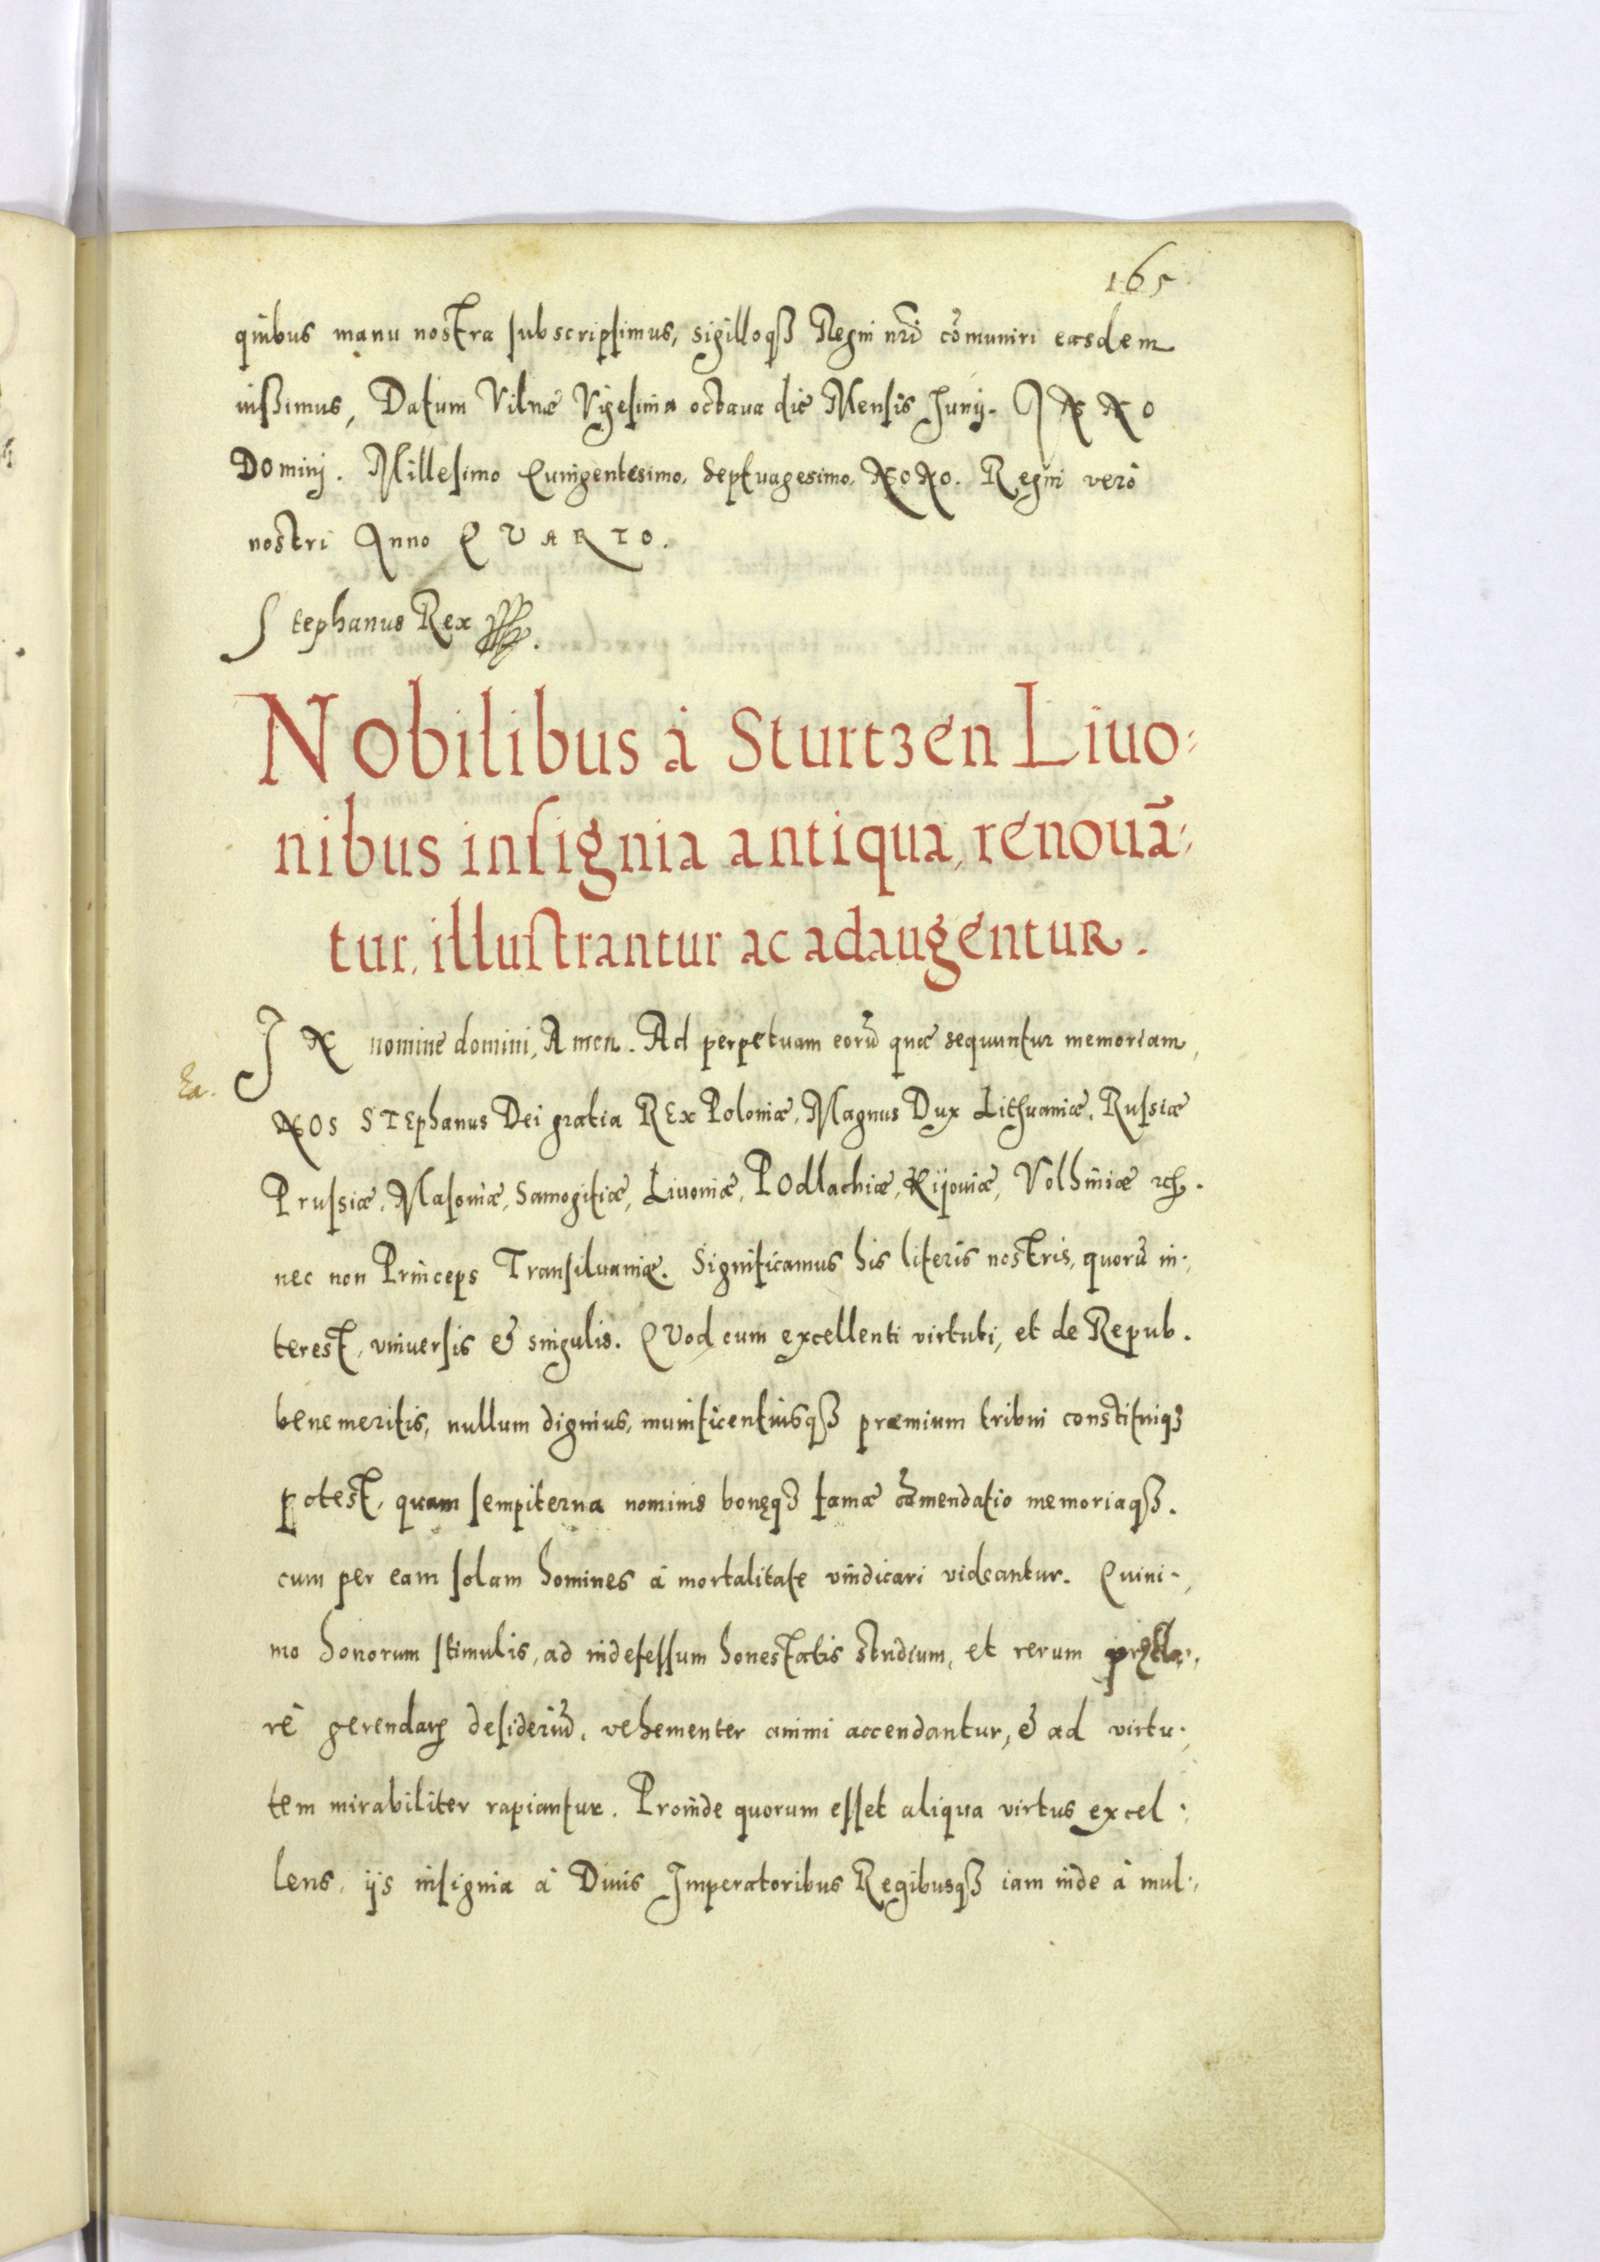 165
quibus manu nostra subscripsimus, sigilloqß Regni nrī cōmuniri easdem
iußimus, Datum Vilnæ Vigesima octaua die Mensis Junij. ANNO
DOminj. Millesimo Quingentesimo, septuagesimo, NONO. Regni verò
nostri Anno QVARTO.
Stephanus Rex
Nobilibus à Sturtzen Liuo:
nibus insignia antiqua, renouā:
tur, illustrantur ac adaugentur.
IN nomine domini, Amen. Ad perpetuam eorū quæ sequuntur memoriam,
Ea.
NOS STEphanus Dei gratia REx Poloniæ, Magnus Dux Lithuaniæ, Russiæ
Prussiæ, Masouiæ, Samogitiæ, Liuoniæ, POdlachiæ, Kijouiæ, Volhiniæ ꝛcꝭ.
nec non Princeps Transiluaniæ. Significamus his literis nostris, quorū in:
terest, vniuersis & singulis. QVod cum excellenti virtuti, et de Repub.
benemeritis, nullum dignius, munificentiusqß præmium tribui constituiqꝫ
potest, quam sempiterna nominis bonęqꝫ famæ cōmendatio memoriaqß.
cum per eam solam homines à mortalitate vindicari videantur. Quini:
mo honorum stimulis, ad indefessum honestatis studium, et rerum pręcla:
rè gerendaꝝ desideriū, vehementer animi accendantur, & ad virtu:
tem mirabiliter rapiantur. Proinde quorum esset aliqua virtus excel:
lens, ijs insignia à Diuis Imperatoribus Regibusqß iam inde à mul: